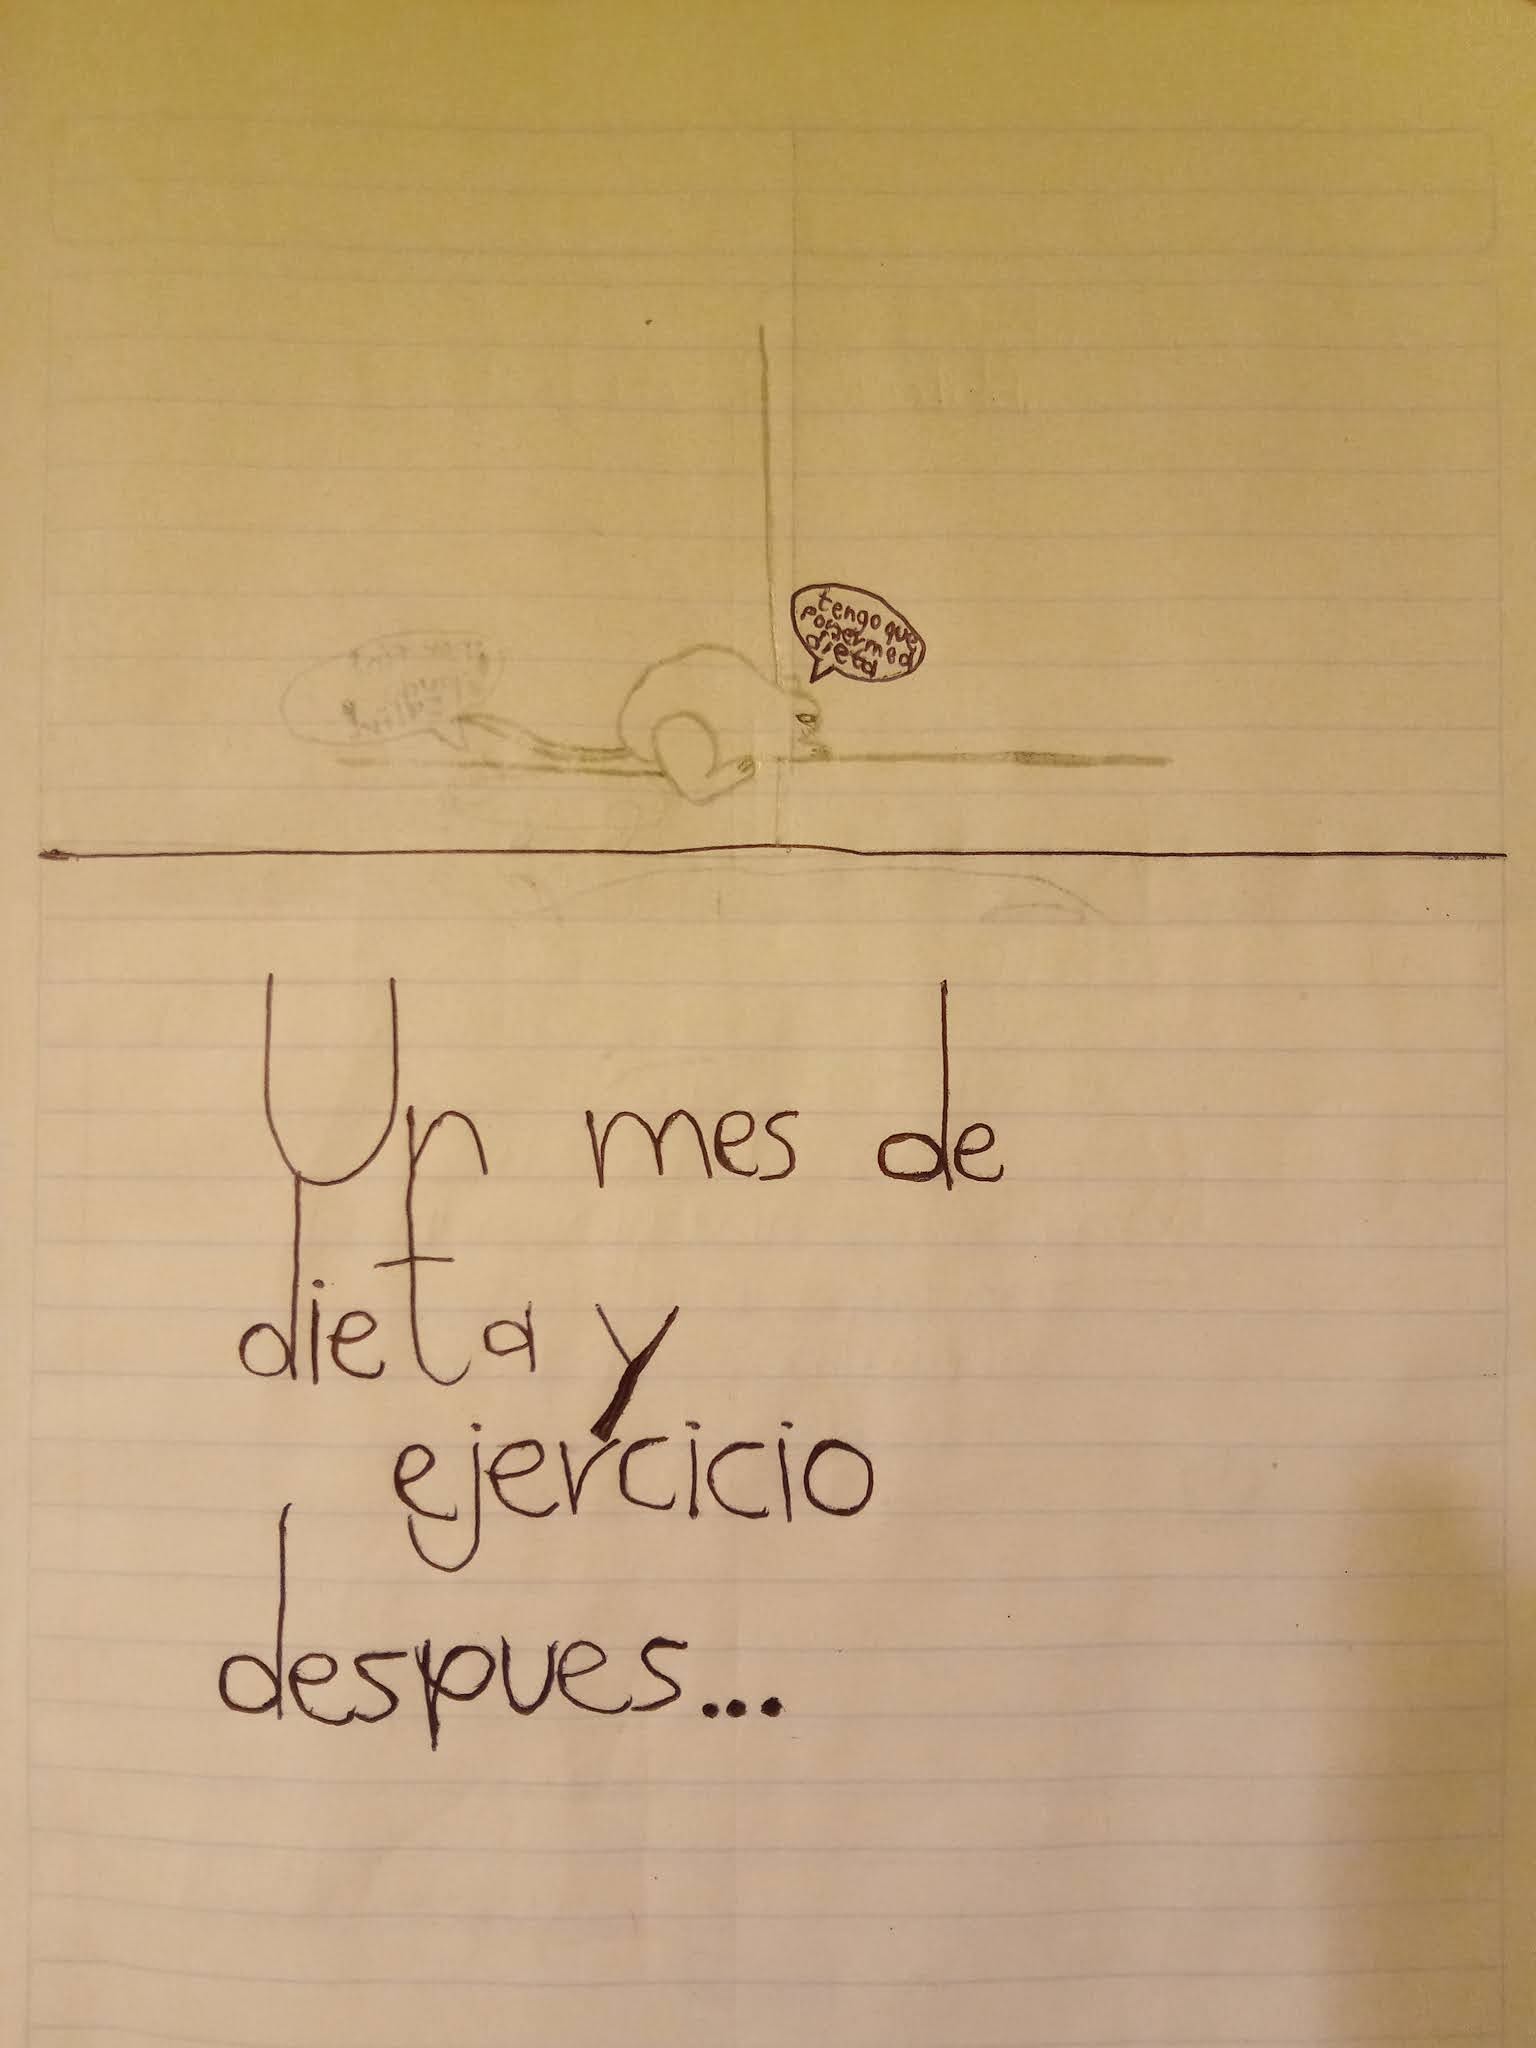 tengo que
ponerme a
dieta
Un mes de
dieta y
ejercicio
despues...